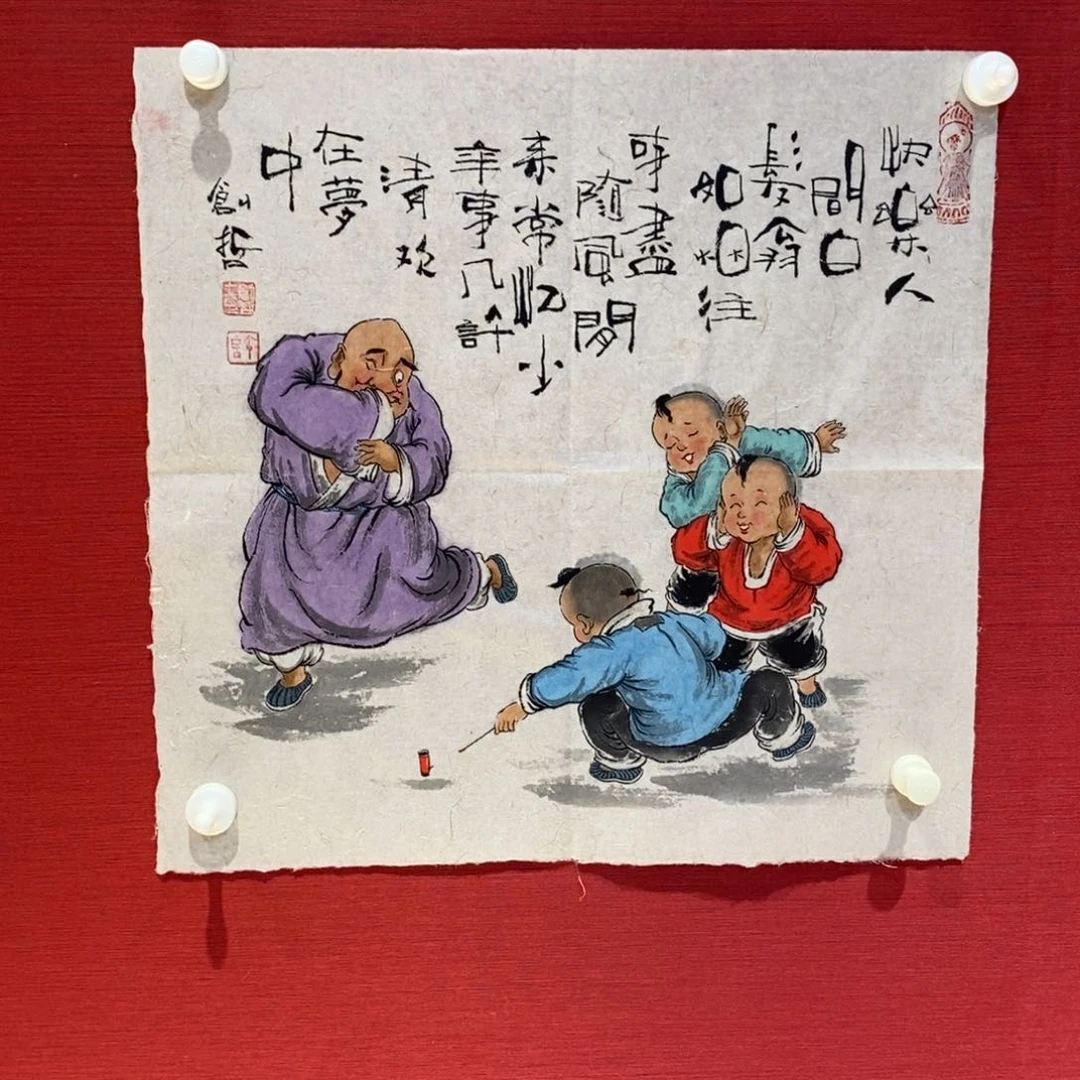 快樂人
間白
髮翁
如烟往
事盡
随風閒
来常忆少
年事几許
清欢
在夢
中
創哲